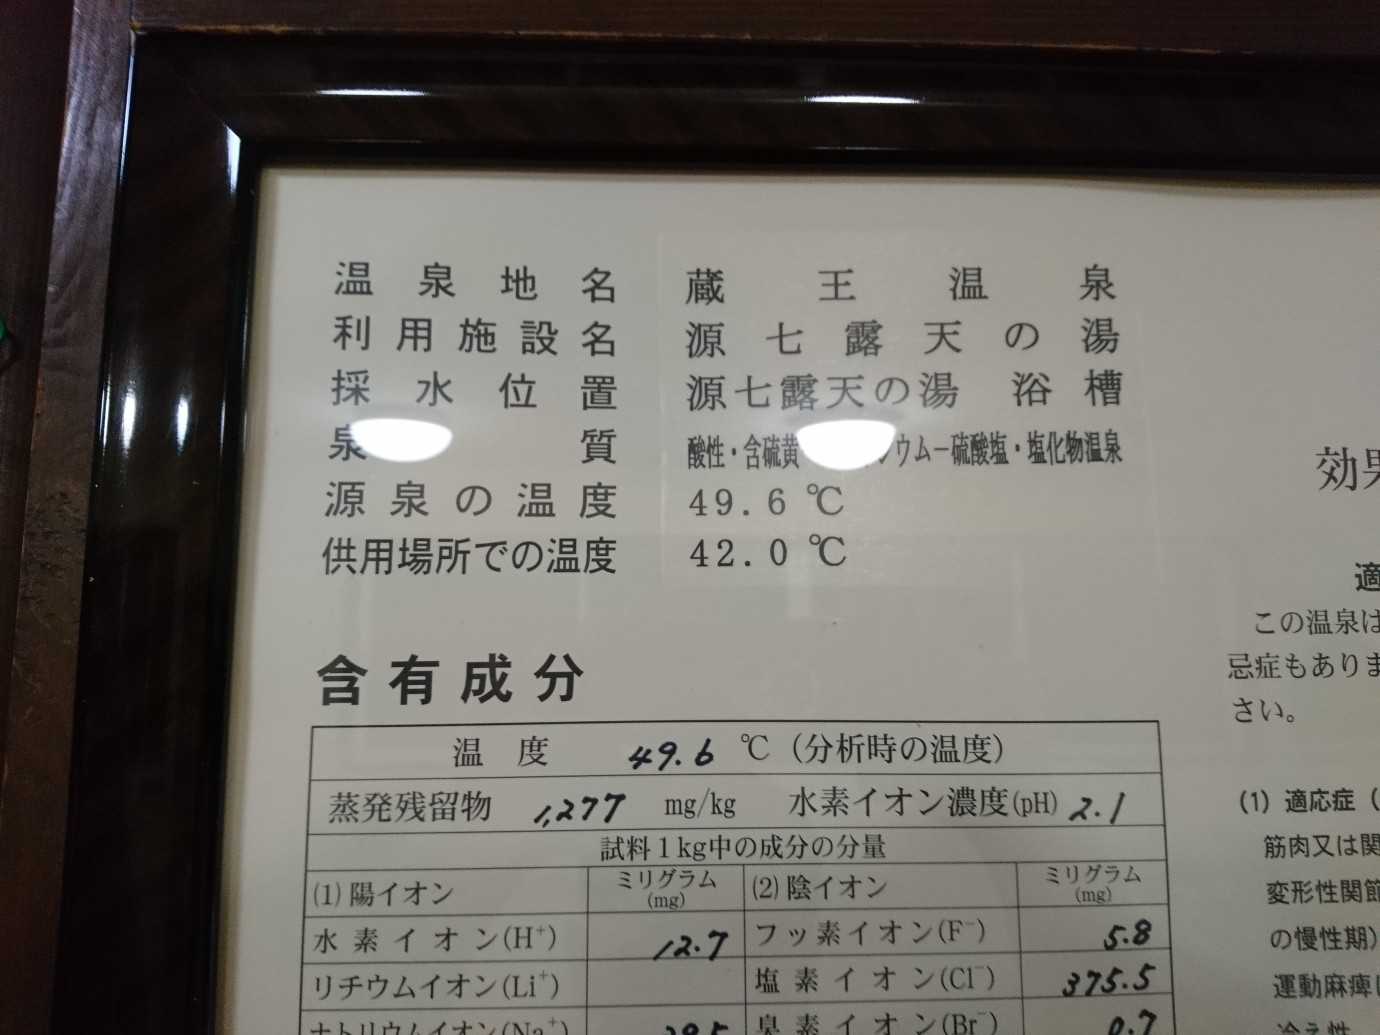 温泉地名 蔵王温泉
利用施設名 源七露天の湯
採水位置 源七露天の湯 浴槽
泉質 酸性・含硫黄 ウム－硫酸塩・塩化物温泉
源泉の温度 49.6 ℃
供用場所での温度 42.0 ℃
含有成分
温度 49.6 ℃（分析時の温度）
蒸発残留物 1,277 mg/kg 水素イオン濃度(pH) 2.1
試料1kg中の成分の分量
(1) 陽イオン ミリグラム(mg) (2) 陰イオン ミリグラム(mg)
水素イオン(H⁺) 12.7 フッ素イオン(F⁻) 5.8
リチウムイオン(Li⁺) 塩素イオン(Cl⁻) 375.5
ナトリウムイオン(Na⁺) 臭素イオン(Br⁻) 0.7
効果
適
この温泉は
忌症もありま
さい。
(1) 適応症（
筋肉又は関
変形性関節
の慢性期）
運動麻痺
冷え性